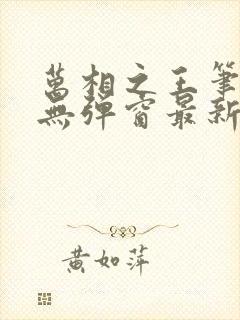 萬相之王筆
無彈窗最新
黃如萍